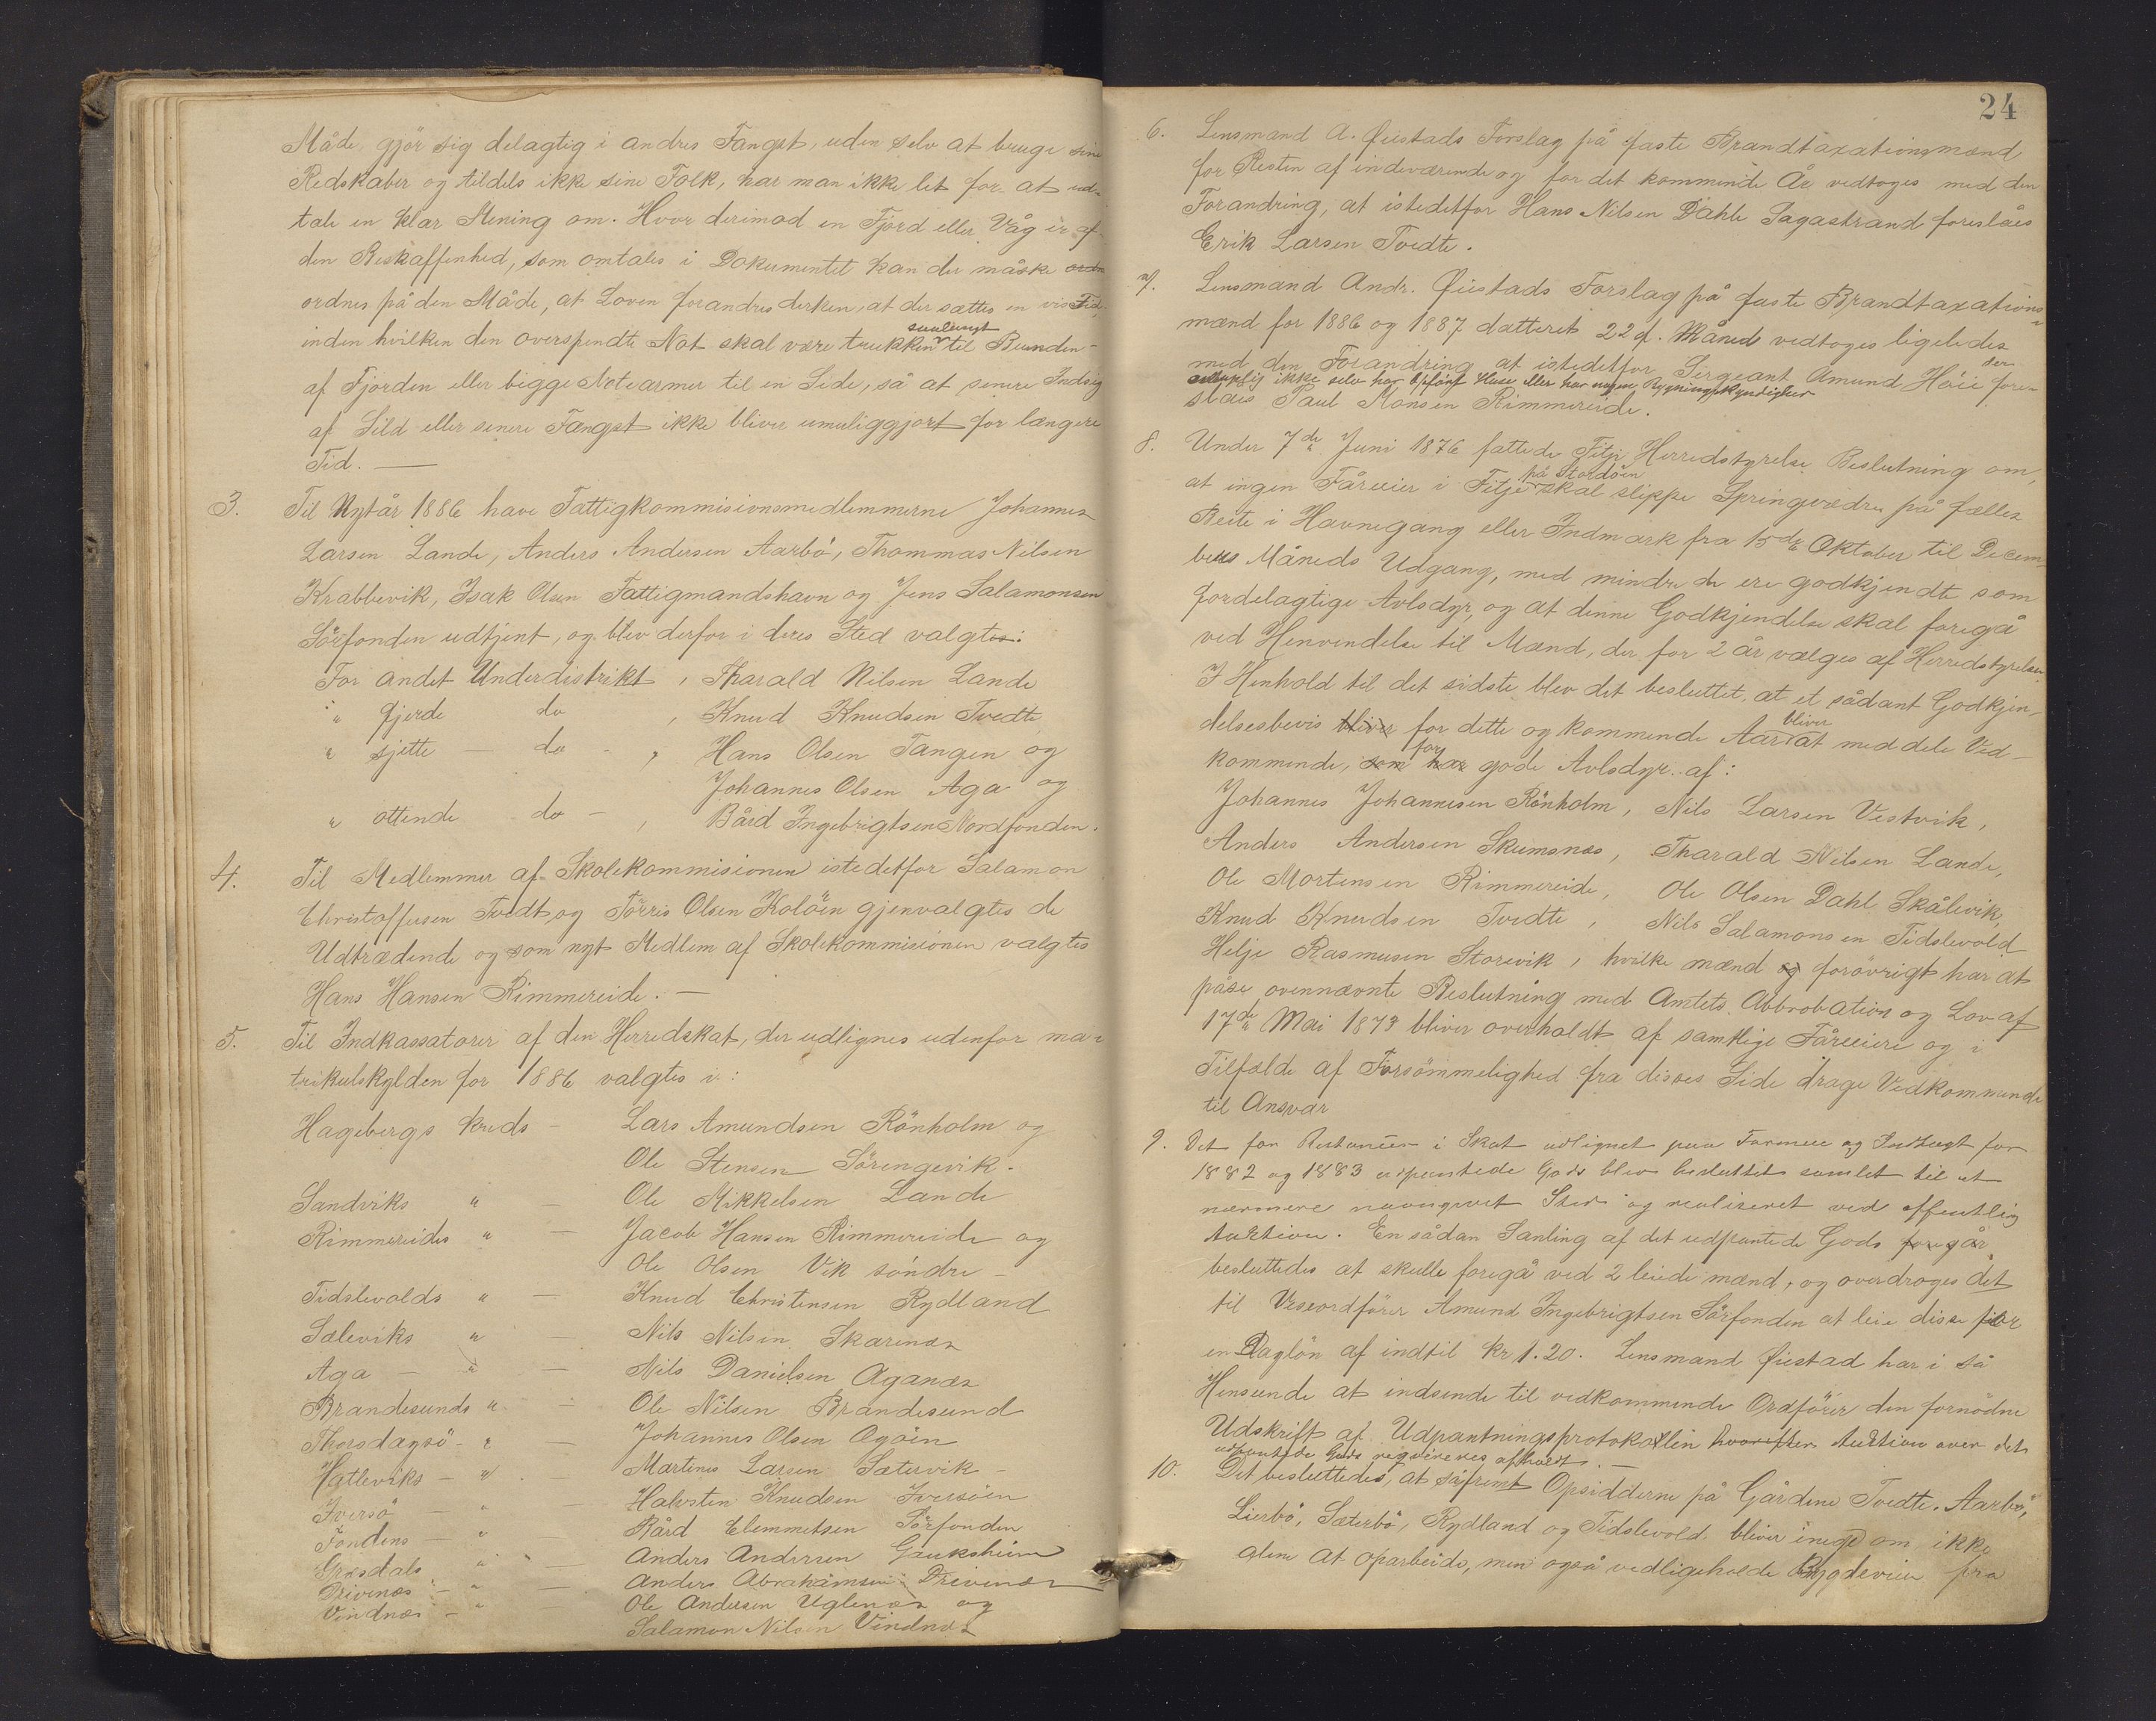 Måde, gjör sig delagtig i andres Fangst, uden selv at bruge sine
Redskaber og tildels ikke sine Folk, har man ikke let for at ud-
tale en klar Mening om. Hvor derimod en Fjord eller Våg er af
den Beskaffenhed, som omtales i Dokumentet kan der måske
ordnes på den Måde, at Loven forandres derhen, at der sættes en vis Tid,
inden hvilken den overspendte Not skal være trukken saalangt til Bunden
af Fjorden eller begge Notearmer til en Side, så at senere Indsig
af Sild eller senere Fangst ikke bliver umuliggjort for længere
Tid. —
3. Til Nytår 1886 have Fattigkommisionsmedlemmerne Johannes
Larsen Lande, Anders Andersen Aarbö, Thommas Nilsen
Krabbevik, Isak Olsen Fattigmandshavn og Jens Salamonsen
Sörfonden udtjent, og blev derfor i deres Sted valgtes:
For andet Underdistrikt, Tharald Nilsen Lande
" fjerde do , Knud Knudsen Tvedte
" sjette — do - , Hans Olsen Tangen og
Johannes Olsen Aga og
" ottende do - , Bård Ingebrigtsen Nordfonden.
4. Til Medlemmer af Skolekommisionen istedetfor Salamon
Christoffersen Tvedt og Törris Olsen Kolöen gjenvalgtes de
Udtrædende og som nyt Medlem af Skolekommisionen valgtes
Hans Hansen Rimmereide. —
5. Til Indkassatorer af den Herredskat, der udlignes udenfor ma-
trikulskylden for 1886 valgtes i:
Hagebergs kreds - Lars Amundsen Rönholm og
Ole Stensen Söringevik.
Sandviks " — Ole Mikkelsen Lande
Rimmereides " — Jacob Hansen Rimmereide og
Ole Olsen Vik söndre -
Tidslevolds " — Knud Christensen Rydland
Sæleviks " — Nils Nilsen Skarenes
Aga — " — Nils Danielsen Aganæs
Brandesunds " — Ole Nilsen Brandesund
Thorsdagsö - " — Johannes Olsen Ægöen
Hatleviks — " — Martines Larsen Sætervik -
Iversö — " — Halvsten Knudsen Iversöen
Fondens — " Bård Clemmetsen Sörfonden
" — Anders Andersen Gauksheim
Drivenæs — " — Anders Abrahamsen Drivenæs
Vindnæs — " — Ole Andersen Uglenæs og
Salamon Nilsen Vindnæs
24
6. Lensmand A. Øiestads Forslag på faste Brandtaxationsmænd
for Resten af indeværende og for det kommende År vedtoges med den
Forandring, at istedetfor Hans Nilsen Dahle Sagastrand foreslåes
Erik Larsen Tvedte.
7. Lensmand Andr. Øiestads Forslag på faste Brandtaxations-
mænd for 1886 og 1887 datteret 22 d. Måned vedtoges ligeledes
med den Forandring at istedetfor Sirgeant Amund Höie der
ikke selv har Opført Huse eller har nogen Bygningskyndighed fore-
slåes Paul Monsen Rimmereide.
8. Under 7de Juni 1876 fattede Fitje Herredstyrelse Beslutning om,
at ingen Fåreeier i Fitje på Stordöen skal slippe Springvædre på fælles
Beite i Havnegang eller Indmark fra 15de Oktober til Decem-
bers Måneds Udgang, med mindre de ere godkjendte som
fordelagtige Avlsdyr, og at denne Godkjendelse skal foregå
ved Henvendelse til Mænd, der for 2 år vælges af Herredstyrelsen
I Henhold til det sidste blev det besluttet, at et sådant Godkjen-
delsesbevis bliver for dette og kommende Aar bliver at meddele Ved-
kommende, som har for gode Avlsdyr af:
Johannes Johannesen Rönholm, Nils Larsen Vestvik,
Anders Andersen Skumsnes, Tharald Nilsen Lande,
Ole Mortensen Rimmereide, Ole Olsen Dahl Skålevik,
Knud Knudsen Tvedte, Nils Salamonsen Tidslevold
Helje Rasmusen Storevik, hvilke mænd og forövrigt har at
påse ovennævnte Beslutning med Amtets Abbrobation og Lov af
17de Mai 1873 bliver overholdt af samtlige Fåreeiere og i
Tilfælde af Forsömmelighed fra disses Side drage Vedkommende
til Ansvar
9. Det for Restancer i Skat udlignet paa Formue og Indtægt for
1882 og 1883 udpantede Gods blev besluttet samlet til et
nærmere navngivet Sted og realiseret ved offentlig
Auktion. En sådan Samling af det udpantede Gods foregår
besluttedes at skulle foregå ved 2 leiede mænd, og overdroges det
til Viseordfører Amund Ingebrigtsen Sörfonden at leie disse for
en Daglön af indtil kr 1.20. Lensmand Øiestad har i så
Henseende at indsende til vedkommende Ordförer den fornödne
Udskrift af Udpantningsprotokollen hvorefter Auktion over det
udpantede Gods reqvireres afholdt. —
10. Det besluttedes, at såfremt Opsidderne på Gårdene Tvedte, Aarbö,
Lierbö, Sæterbö, Rydland og Tidslevold bliver enige om ikke
alene at oparbeide, men også vedligeholde Bygdeveien fra